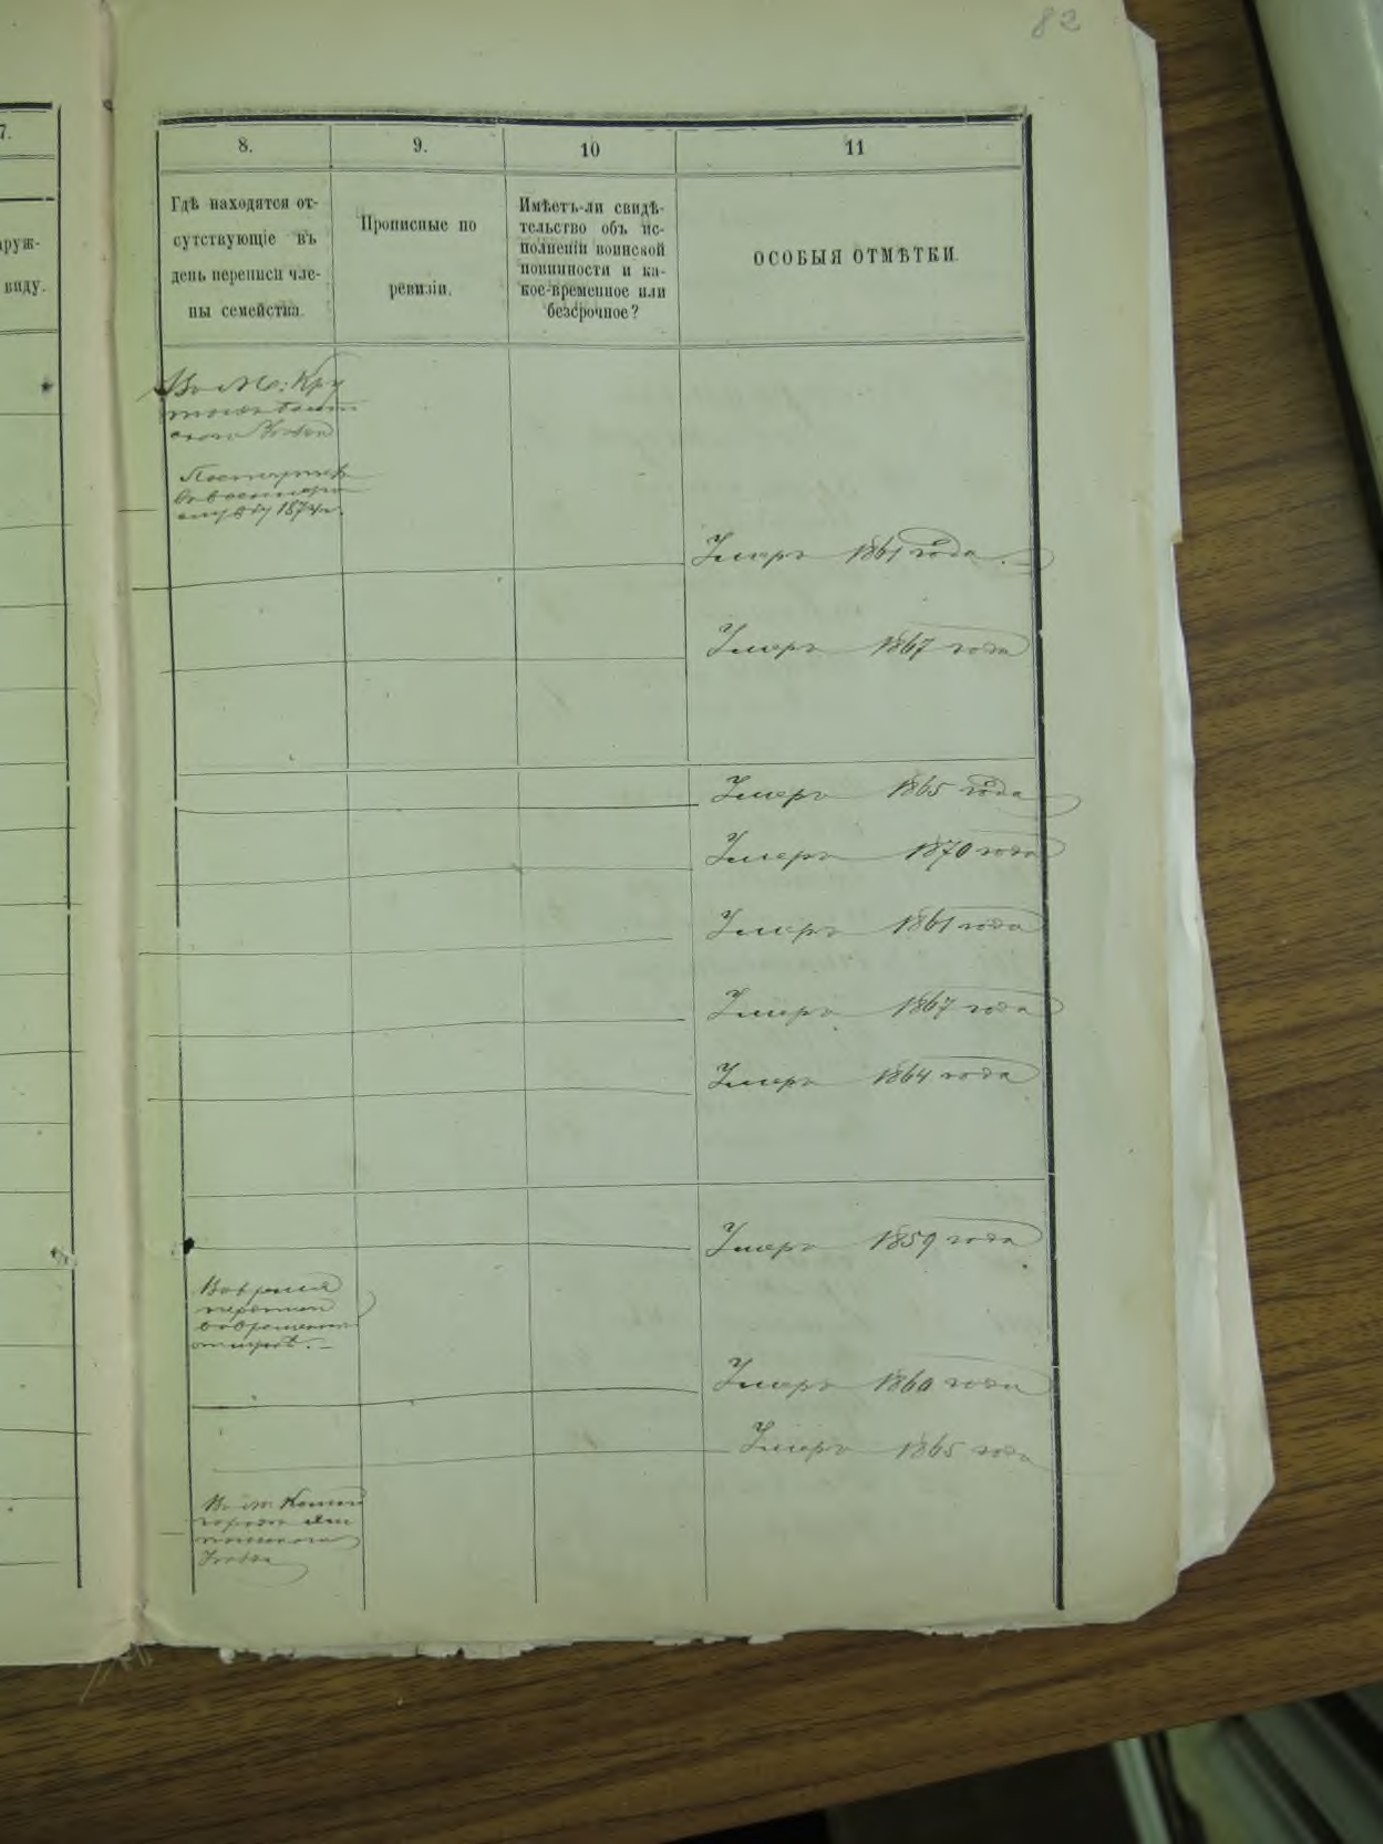 82
7.
8.
9.
10
11
аруж-
виду.
Гдѣ находятся от-
сутствующіе въ
день переписи чле-
ны семейства.
Прописные по
ревизіи.
Имѣетъ-ли свидѣ-
тельство объ ис-
полненіи воинской
повинности и ка-
кое-временное или
безсрочное?
ОСОБЫЯ ОТМѢТКИ.
Въ М: Кру
1874 г.
Умеръ 1861 года.
Умеръ 1867 года
Умеръ 1865 года
Умеръ 1870 года
Умеръ 1861 года
Умеръ 1867 года
Умеръ 1864 года
Умеръ 1859 года
Во время
Умеръ 1860 года
Умеръ 1865 года
Въ м.